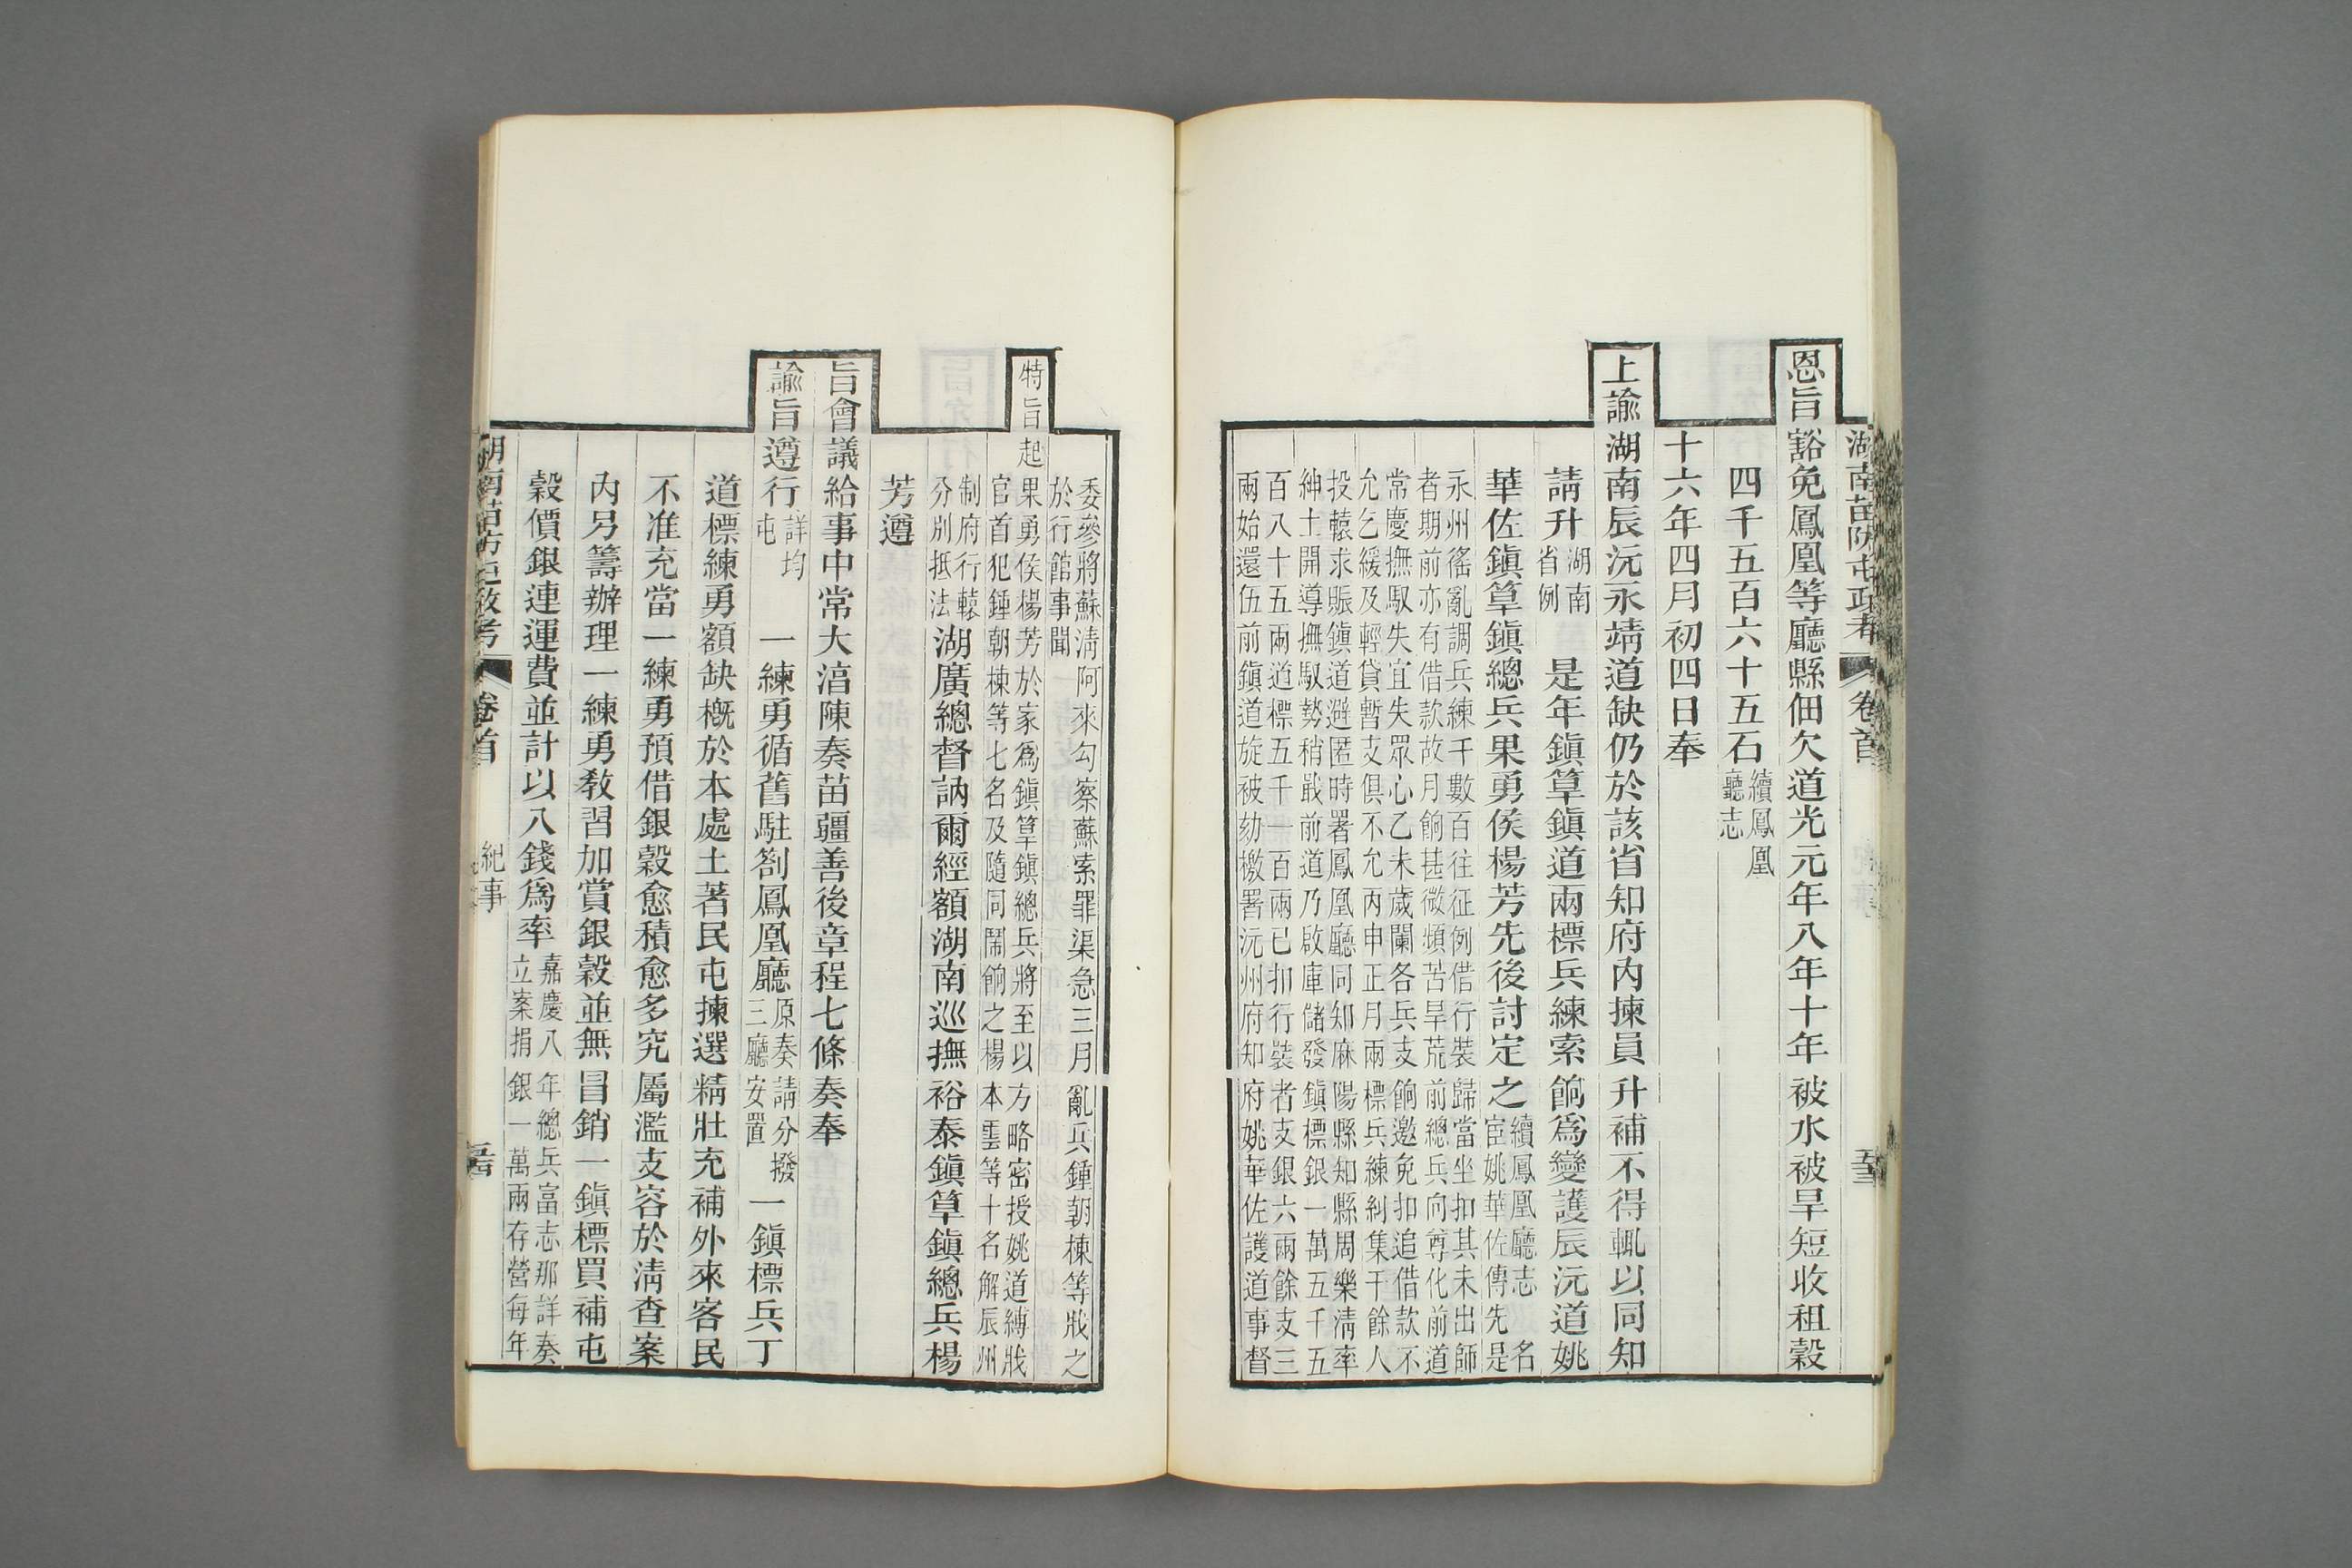 湖南苗防屯政考 卷首 五十三
恩旨豁免鳳凰等廳縣佃欠道光元年八年十年被水被旱短收租穀
四千五百六十五石續鳳凰廳志
十六年四月初四日奉
上諭湖南辰沅永靖道缺仍於該省知府內揀員升補不得輒以同知
請升湖南省例 是年鎭筸鎭道兩標兵練索餉爲變護辰沅道姚
華佐鎭筸鎭總兵果勇侯楊芳先後討定之續鳳凰廳志名宦姚華佐傳先是
永州徭亂調兵練千數百往征例借行裝歸當坐扣其未出師
者期前亦有借款故月餉甚微頻苦旱荒前總兵向尊化前道
常慶撫馭失宜失眾心乙未歲闌各兵支餉邀免扣追借款不
允乞緩及輕貸暫支俱不允丙申正月兩標兵練糾集千餘人
投轅求賑鎭道避匿時署鳳凰廳同知麻陽縣知縣周樂淸率
紳士開導撫馭勢稍戢前道乃啟庫儲發鎭標銀一萬五千五
百八十五兩道標五千一百兩已扣行裝者支銀六兩餘支三
兩始還伍前鎭道旋被劾檄署沅州府知府姚華佐護道事督
委參將蘇淸阿來勾察蘇索罪渠急三月亂兵鍾朝棟等戕之
於行館事聞
特旨起果勇侯楊芳於家爲鎭筸鎭總兵將至以方略密授姚道縛戕
官首犯鍾朝棟等七名及隨同鬧餉之楊本雲等十名解辰州
制府行轅分別抵法湖廣總督訥爾經額湖南巡撫裕泰鎭筸鎭總兵楊
芳遵
旨會議給事中常大淳陳奏苗疆善後章程七條奏奉
諭旨遵行詳均屯 一練勇循舊駐劄鳳凰廳原奏請分撥三廳安置一鎭標兵丁
道標練勇額缺槪於本處土著民屯揀選精壯充補外來客民
不准充當一練勇預借銀穀愈積愈多究屬濫支容於淸查案
內另籌辦理一練勇教習加賞銀穀並無冒銷一鎭標買補屯
穀價銀連運費並計以八錢爲率嘉慶八年總兵富志那詳奏立案捐銀一萬兩存營每年
湖南苗防屯政考 卷首 紀事